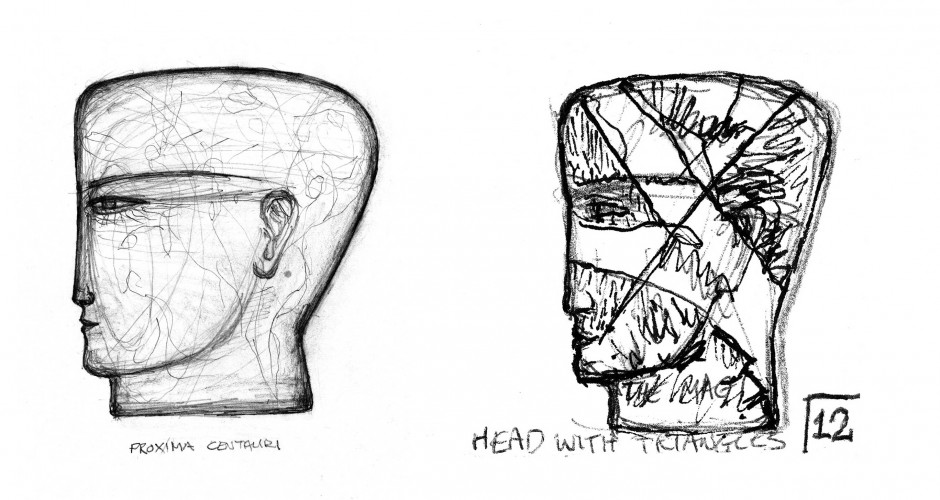 PROXIMA CENTAURI
HEAD WITH TRIANGLES
12